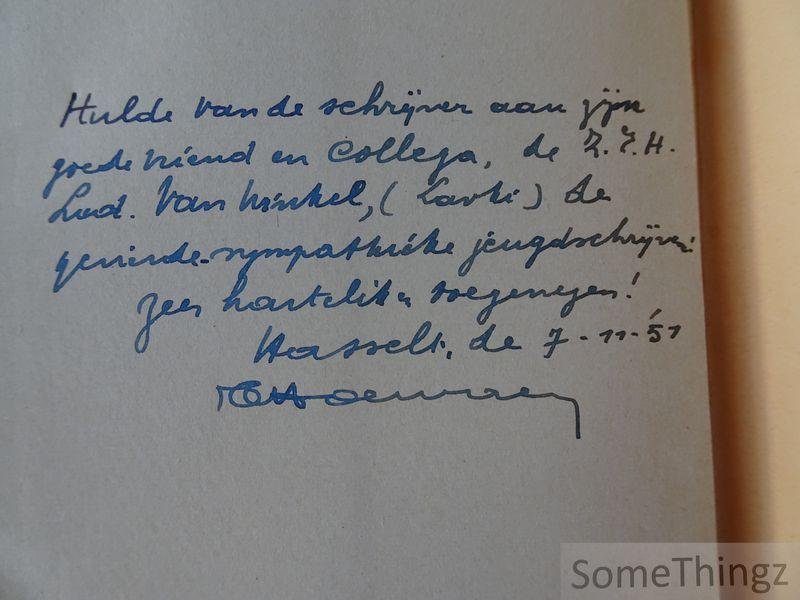 Hulde van de schrijver aan zijn
goede vriend en collega, de Z.E.H.
Lod. Van Winkel, (Lavki) de
geniride-sympathieke jeugdschrijver!
zeer hartelik toegenegen!
Hasselt, de 7-11-51
SomeThingz